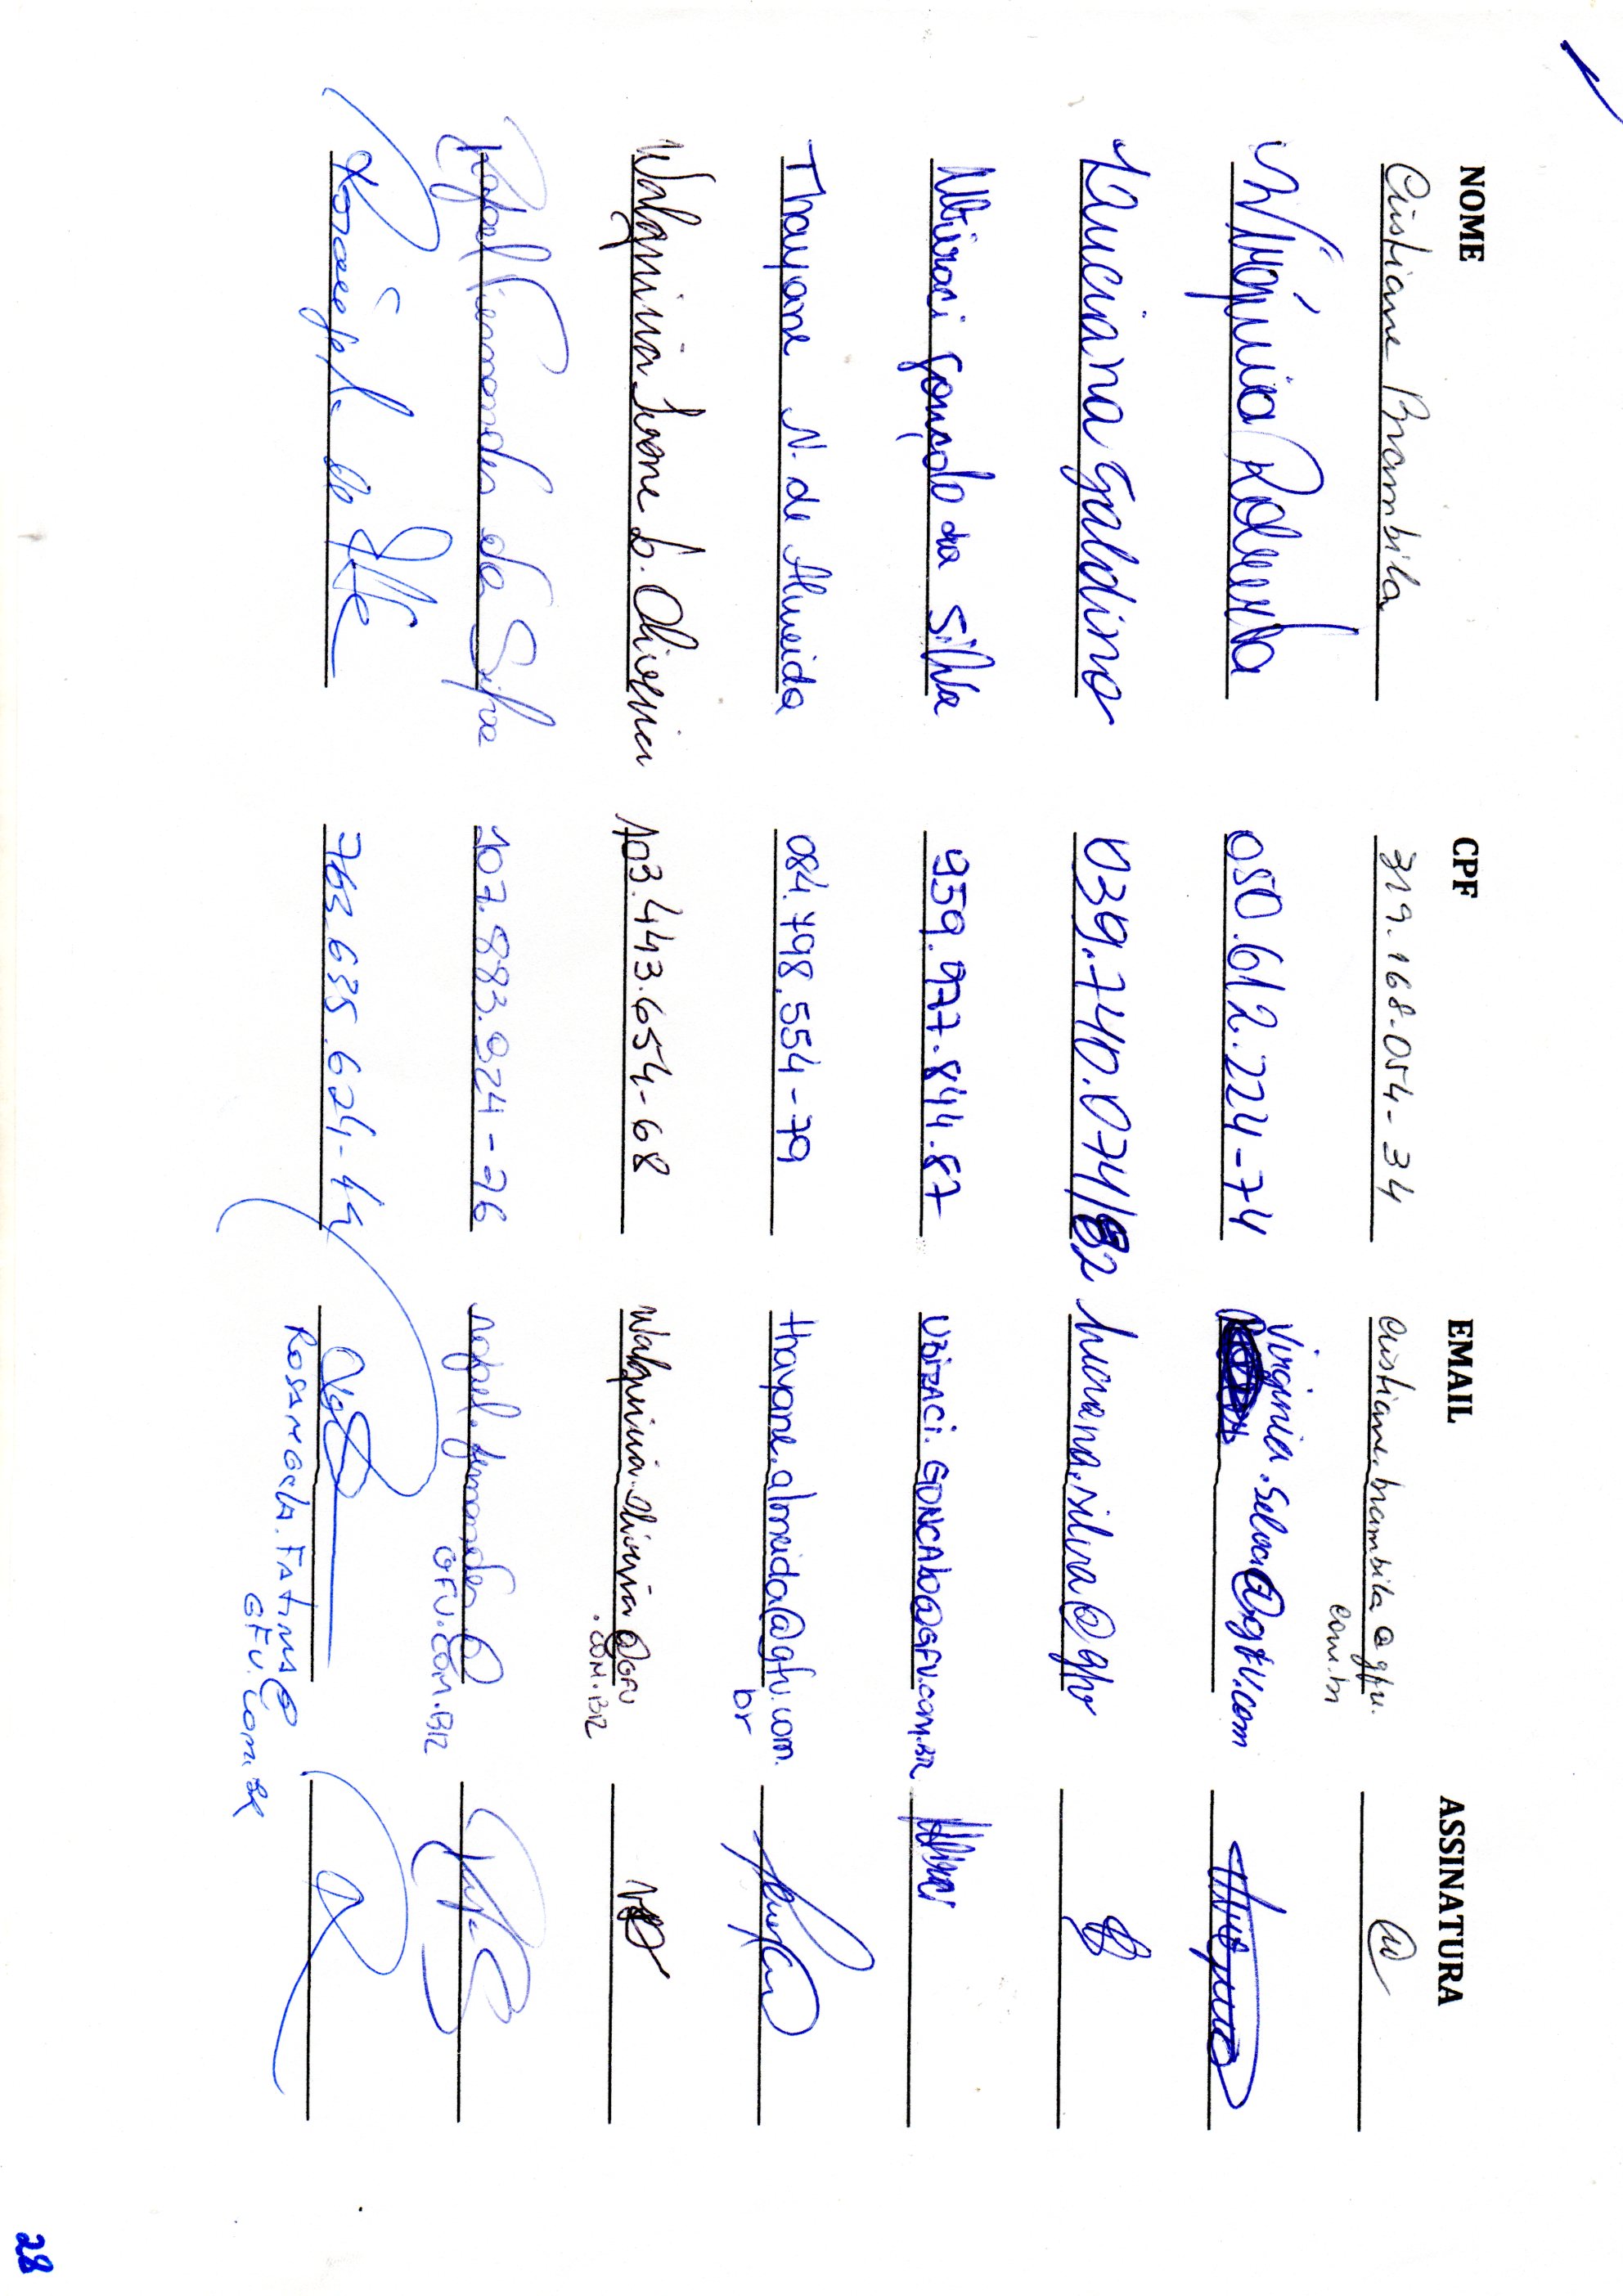 NOME CPF EMAIL ASSINATURA
Cristiane Brambila 319.168.054-34 cristiane.brambila@gfv.
com.br
Virgínia 050.612.224-74 Virginia.Selva@gfv.com
Luciana Galdino 039.740.074/82 luciana.silva@gfv
Ubiraci Gonçalo da Silva 959.977.844.87 UBIRACI.GONCALO@GFV.COM.BR
Thayane N. de Almeida 084.798.554-79 thayane.almeida@gfv.com.
br
Walquiria Ivone L. Oliveira 103.443.654-68 Walquiria.oliveira@GFV
.COM.BR
Rafael Fernandes da Silva 107.883.924-76 rafael.fernandes@
GFV.COM.BR
763.635.624-
Rosangela.Fatima@
GFV.com.BR
28